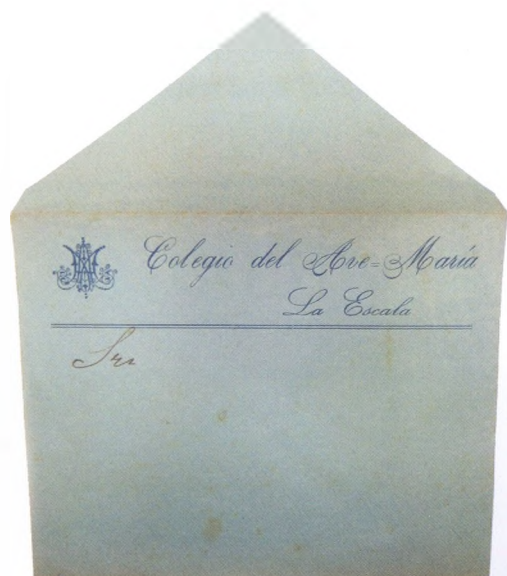 Colegio del Ave=María
La Escala